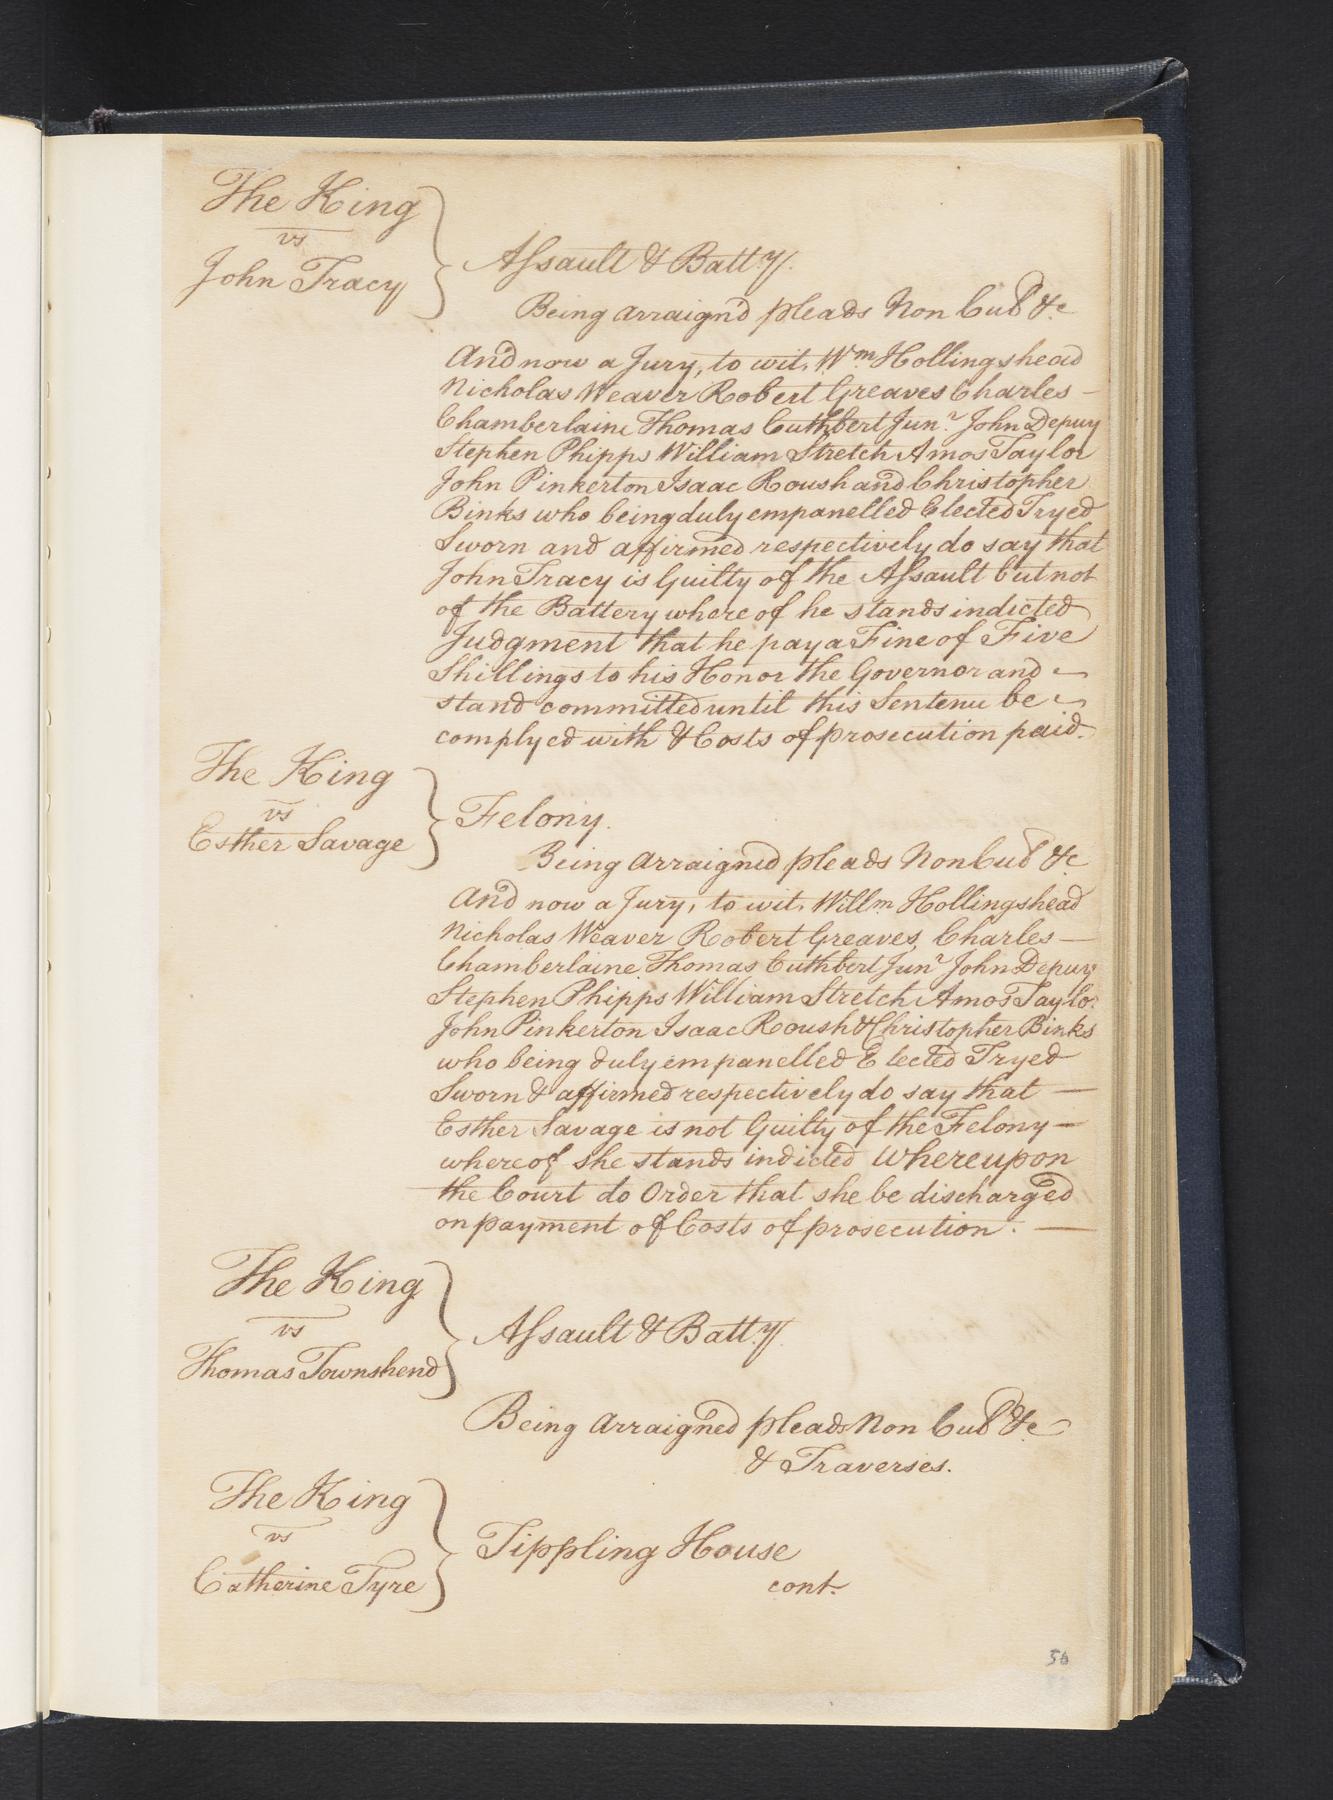 The King
vs
John Tracy
Assault & Batt.y.
Being arraign'd pleads Non Cul &c
And now a Jury, to wit, Wm Hollingshead
Nicholas Weaver Robert Greaves Charles –
Chamberlaine Thomas Cuthbert Junr John Depuy
Stephen Phipps William Stretch Amos Taylor
John Pinkerton Isaac Roush and Christopher
Binks who being duly empanelled Elected Tryed
Sworn and affirmed respectively do say that
John Tracy is Guilty of the Assault but not
of the Battery whereof he stands indicted
Judgment that he pay a Fine of Five
Shillings to his Honor the Governor and –
stand committed until this Sentence be –
complyed with & Costs of prosecution paid.
The King
vs
Esther Savage
Felony.
Being arraigned pleads Non Cul &c
And now a Jury, to wit, Willm Hollingshead
Nicholas Weaver Robert Greaves, Charles –
Chamberlaine Thomas Cuthbert Junr John Depuy
Stephen Phipps William Stretch Amos Taylor
John Pinkerton Isaac Roush & Christopher Binks
who being duly empanelled Elected Tryed
Sworn & affirmed respectively do say that –
Esther Savage is not Guilty of the Felony –
whereof she stands indicted Whereupon
the Court do Order that she be discharged
on payment of Costs of prosecution. –
The King
vs
Thomas Townshend
Assault & Batt.y
Being arraigned pleads Non Cul &c
& Traverses.
The King
vs
Catherine Tyre
Tippling House
cont.
56